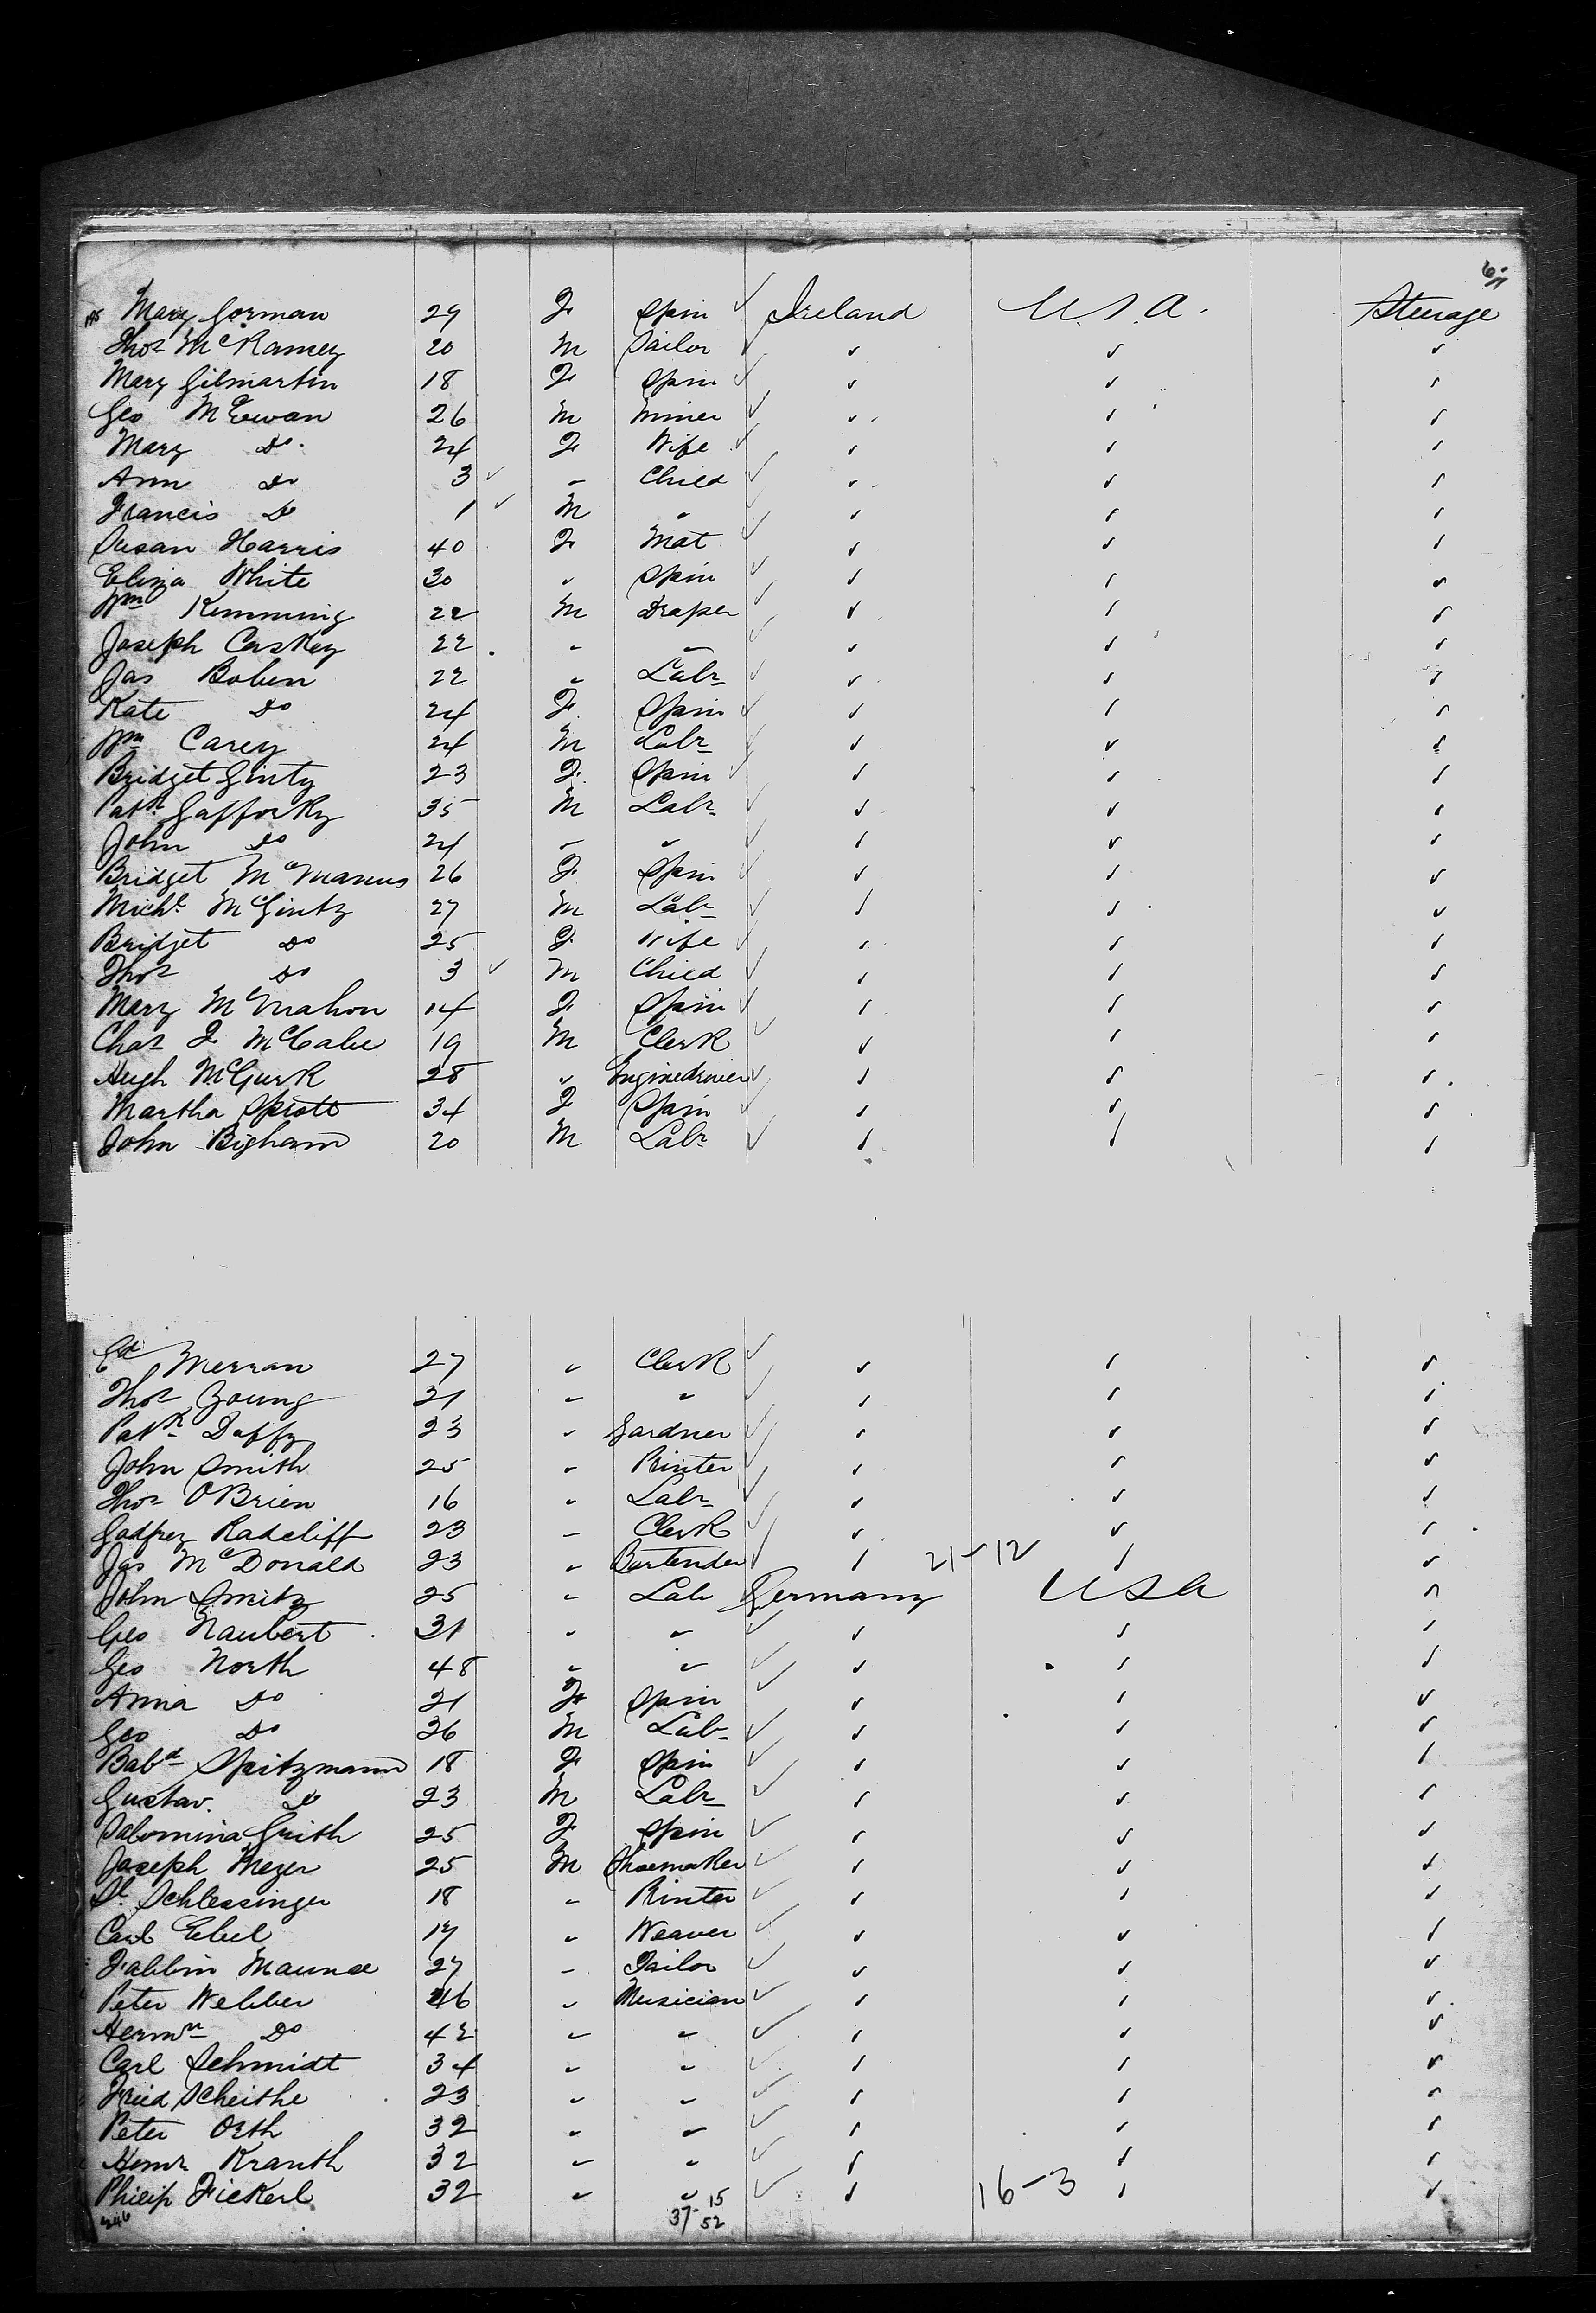 6
Mary Gorman 29 F Spin ✓ Ireland U.S.A. Steerage
Thos McKamey 20 M Tailor ✓ " " "
Mary Gilmartin 18 F Spin ✓ " " "
Geo McEwan 26 M Miner ✓ " " "
Mary Do 24 F Wife ✓ " " "
Ann Do 3 ✓ " Child ✓ " " "
Francis Do 1 ✓ M " ✓ " " "
Susan Harris 40 F Mat ✓ " " "
Eliza White 30 " Spin ✓ " " "
Wm Kemming 22 M Draper ✓ " " "
Joseph Caskey 22 " " ✓ " " "
Jas Bolen 22 " Labr ✓ " " "
Kate Do 24 F Spin ✓ " " "
Wm Carey 24 M Labr ✓ " " "
Bridget Ginty 23 F Spin ✓ " " "
Patk Gafforky 35 M Labr ✓ " " "
John Do 24 " " ✓ " " "
Bridget McManus 26 F Spin ✓ " " "
Michl McGinty 27 M Labr ✓ " " "
Bridget Do 25 F Wife ✓ " " "
Thos Do 3 ✓ M Child ✓ " " "
Mary McMahon 14 F Spin ✓ " " "
Chas F McCabe 19 M Clerk ✓ " " "
Hugh McGurk 28 " Enginedriver ✓ " " "
Martha Sprott 34 F Spin ✓ " " "
John Bigham 20 M Labr ✓ " " "
Ed Merran 27 " Clerk ✓ " " "
Thos Young 21 " " ✓ " " "
Patk Duffy 23 " Gardner ✓ " " "
John Smith 25 " Printer ✓ " " "
Thos OBrien 16 " Labr ✓ " " "
Godfrey Radcliff 23 " Clerk ✓ " " "
Jas McDonald 23 " Bartender ✓ " 21-12 " "
John Smitz 25 " Labr Germany USA "
Geo Naubert 31 " " ✓ " " "
Geo North 48 " " ✓ " " "
Anna Do 21 F Spin ✓ " " "
Geo Do 26 M Labr ✓ " " "
Babd Spitzmann 18 F Spin ✓ " " "
Gustav. Do 23 M Labr ✓ " " "
Salomina Grith 25 F Spin ✓ " " "
Joseph Meyer 25 M Shoemaker ✓ " " "
Sl Schlessinger 18 " Printer ✓ " " "
Carl Ebel 17 " Weaver ✓ " " "
Fabbin Maunce 27 " Tailor ✓ " " "
Peter Webber 46 " Musician ✓ " " "
Hermn Do 42 " " ✓ " " "
Carl Schmidt 34 " " ✓ " " "
Fried Scheithe 23 " " ✓ " " "
Peter Orth 32 " " ✓ " " "
Henr Kranth 32 " " ✓ " " "
Philip Fickerl 32 " " ✓ " 16-3 " "
37-15
52